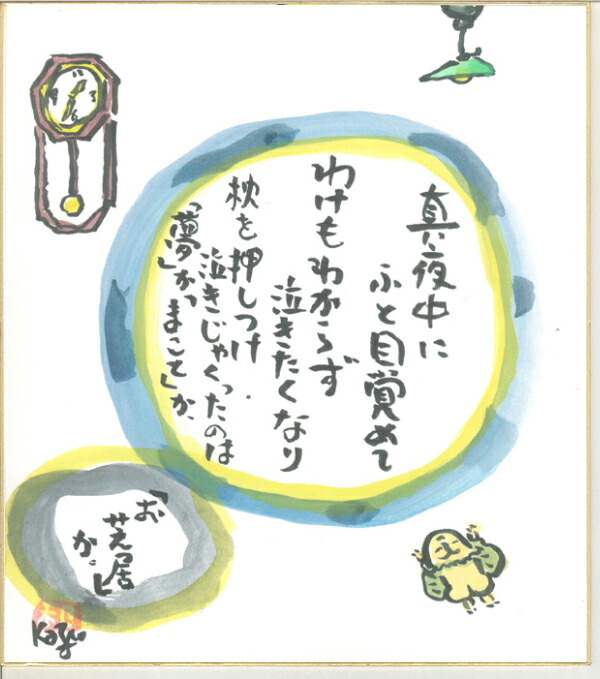 真夜中に
ふと目覚めて
わけもわからず
泣きたくなり
枕を押しつけ
泣きじゃくったのは
「夢」か
「まこと」か、
「お
芝居
か。」
Kazu